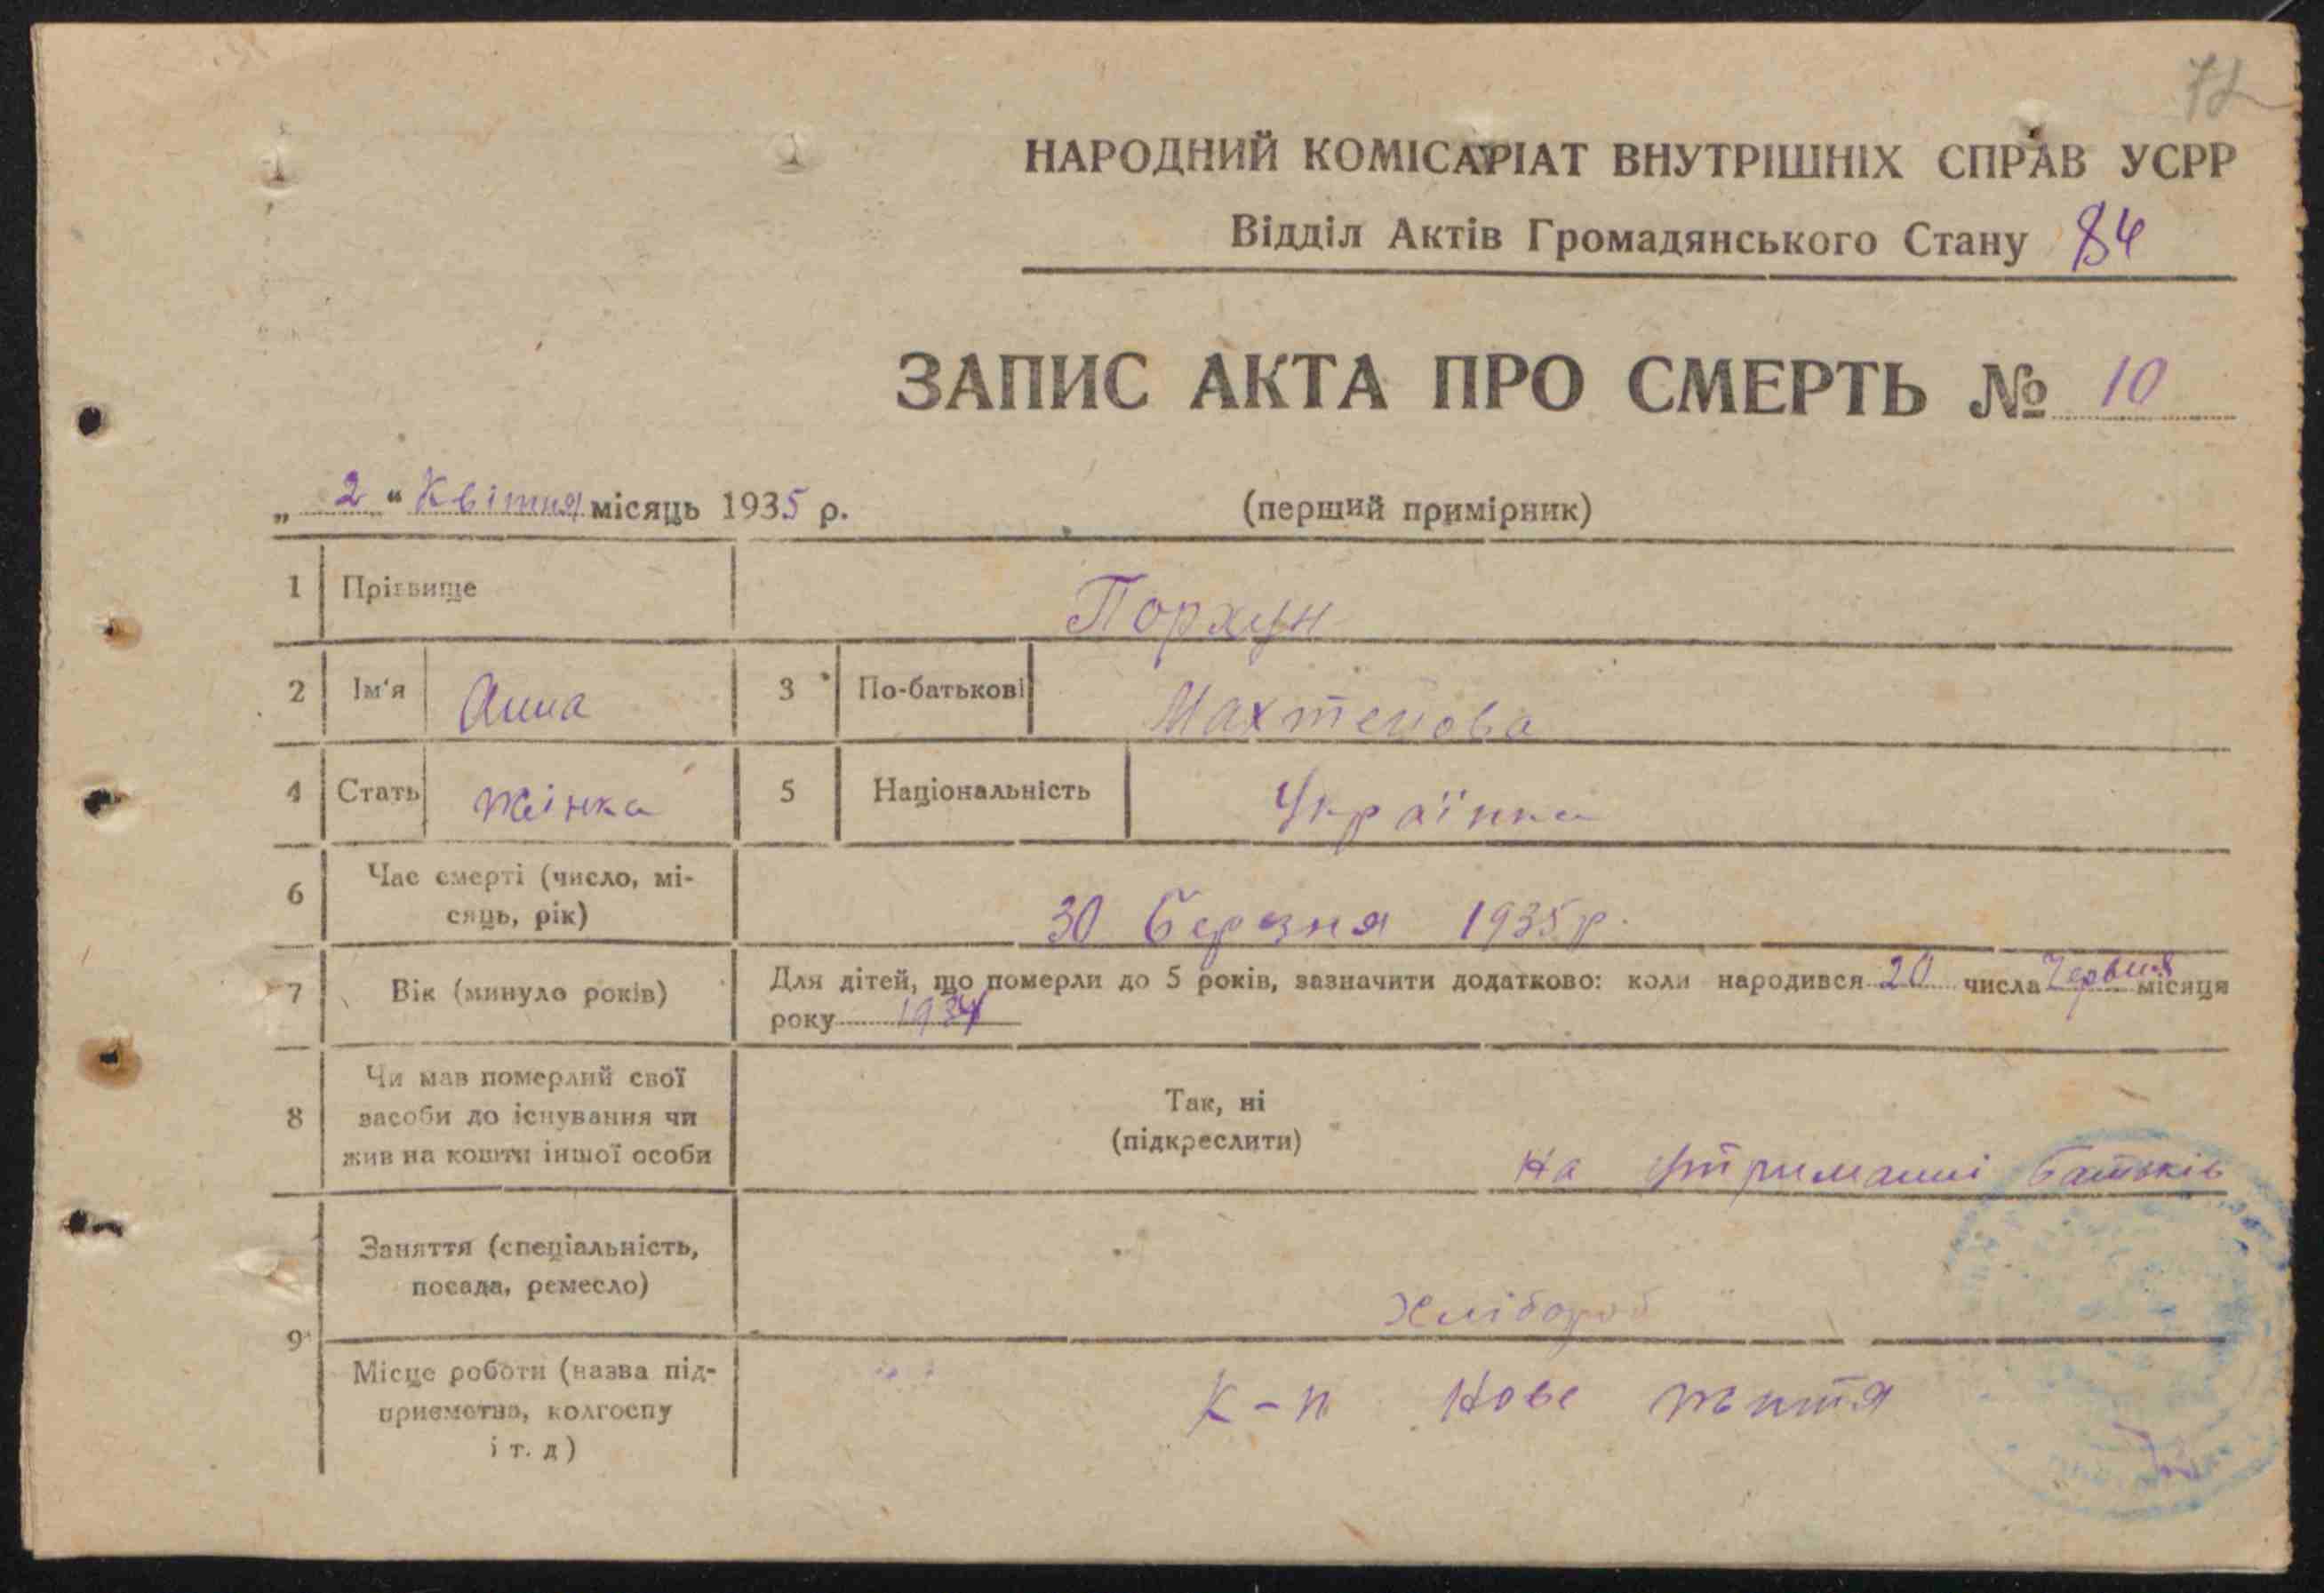 72
НАРОДНИЙ КОМІСАРІАТ ВНУТРІШНІХ СПРАВ УСРР
Відділ Актів Громадянського Стану 84
ЗАПИС АКТА ПРО СМЕРТЬ № 10
„ 2 “ Квітня місяць 1935 р.
(перший примірник)
1 Прізвище Порхун
2 Ім'я Анна 3 По-батькові
4 Стать жінка 5 Національність Українка
6 Час смерті (число, мі-
сяць, рік) 30 березня 1935 р.
7 Вік (минуло років) Для дітей, що померли до 5 років, зазначити додатково: коли народився 20 числа Червня місяця
року 1934
8 Чи мав померлий свої
засоби до існування чи
жив на кошти іншої особи
Так, ні
(підкреслити)
на утриманні батьків
9 Заняття (спеціальність,
посада, ремесло) Хлібороб
Місце роботи (назва під-
приємства, колгоспу
і т. д)
К-п Нове життя